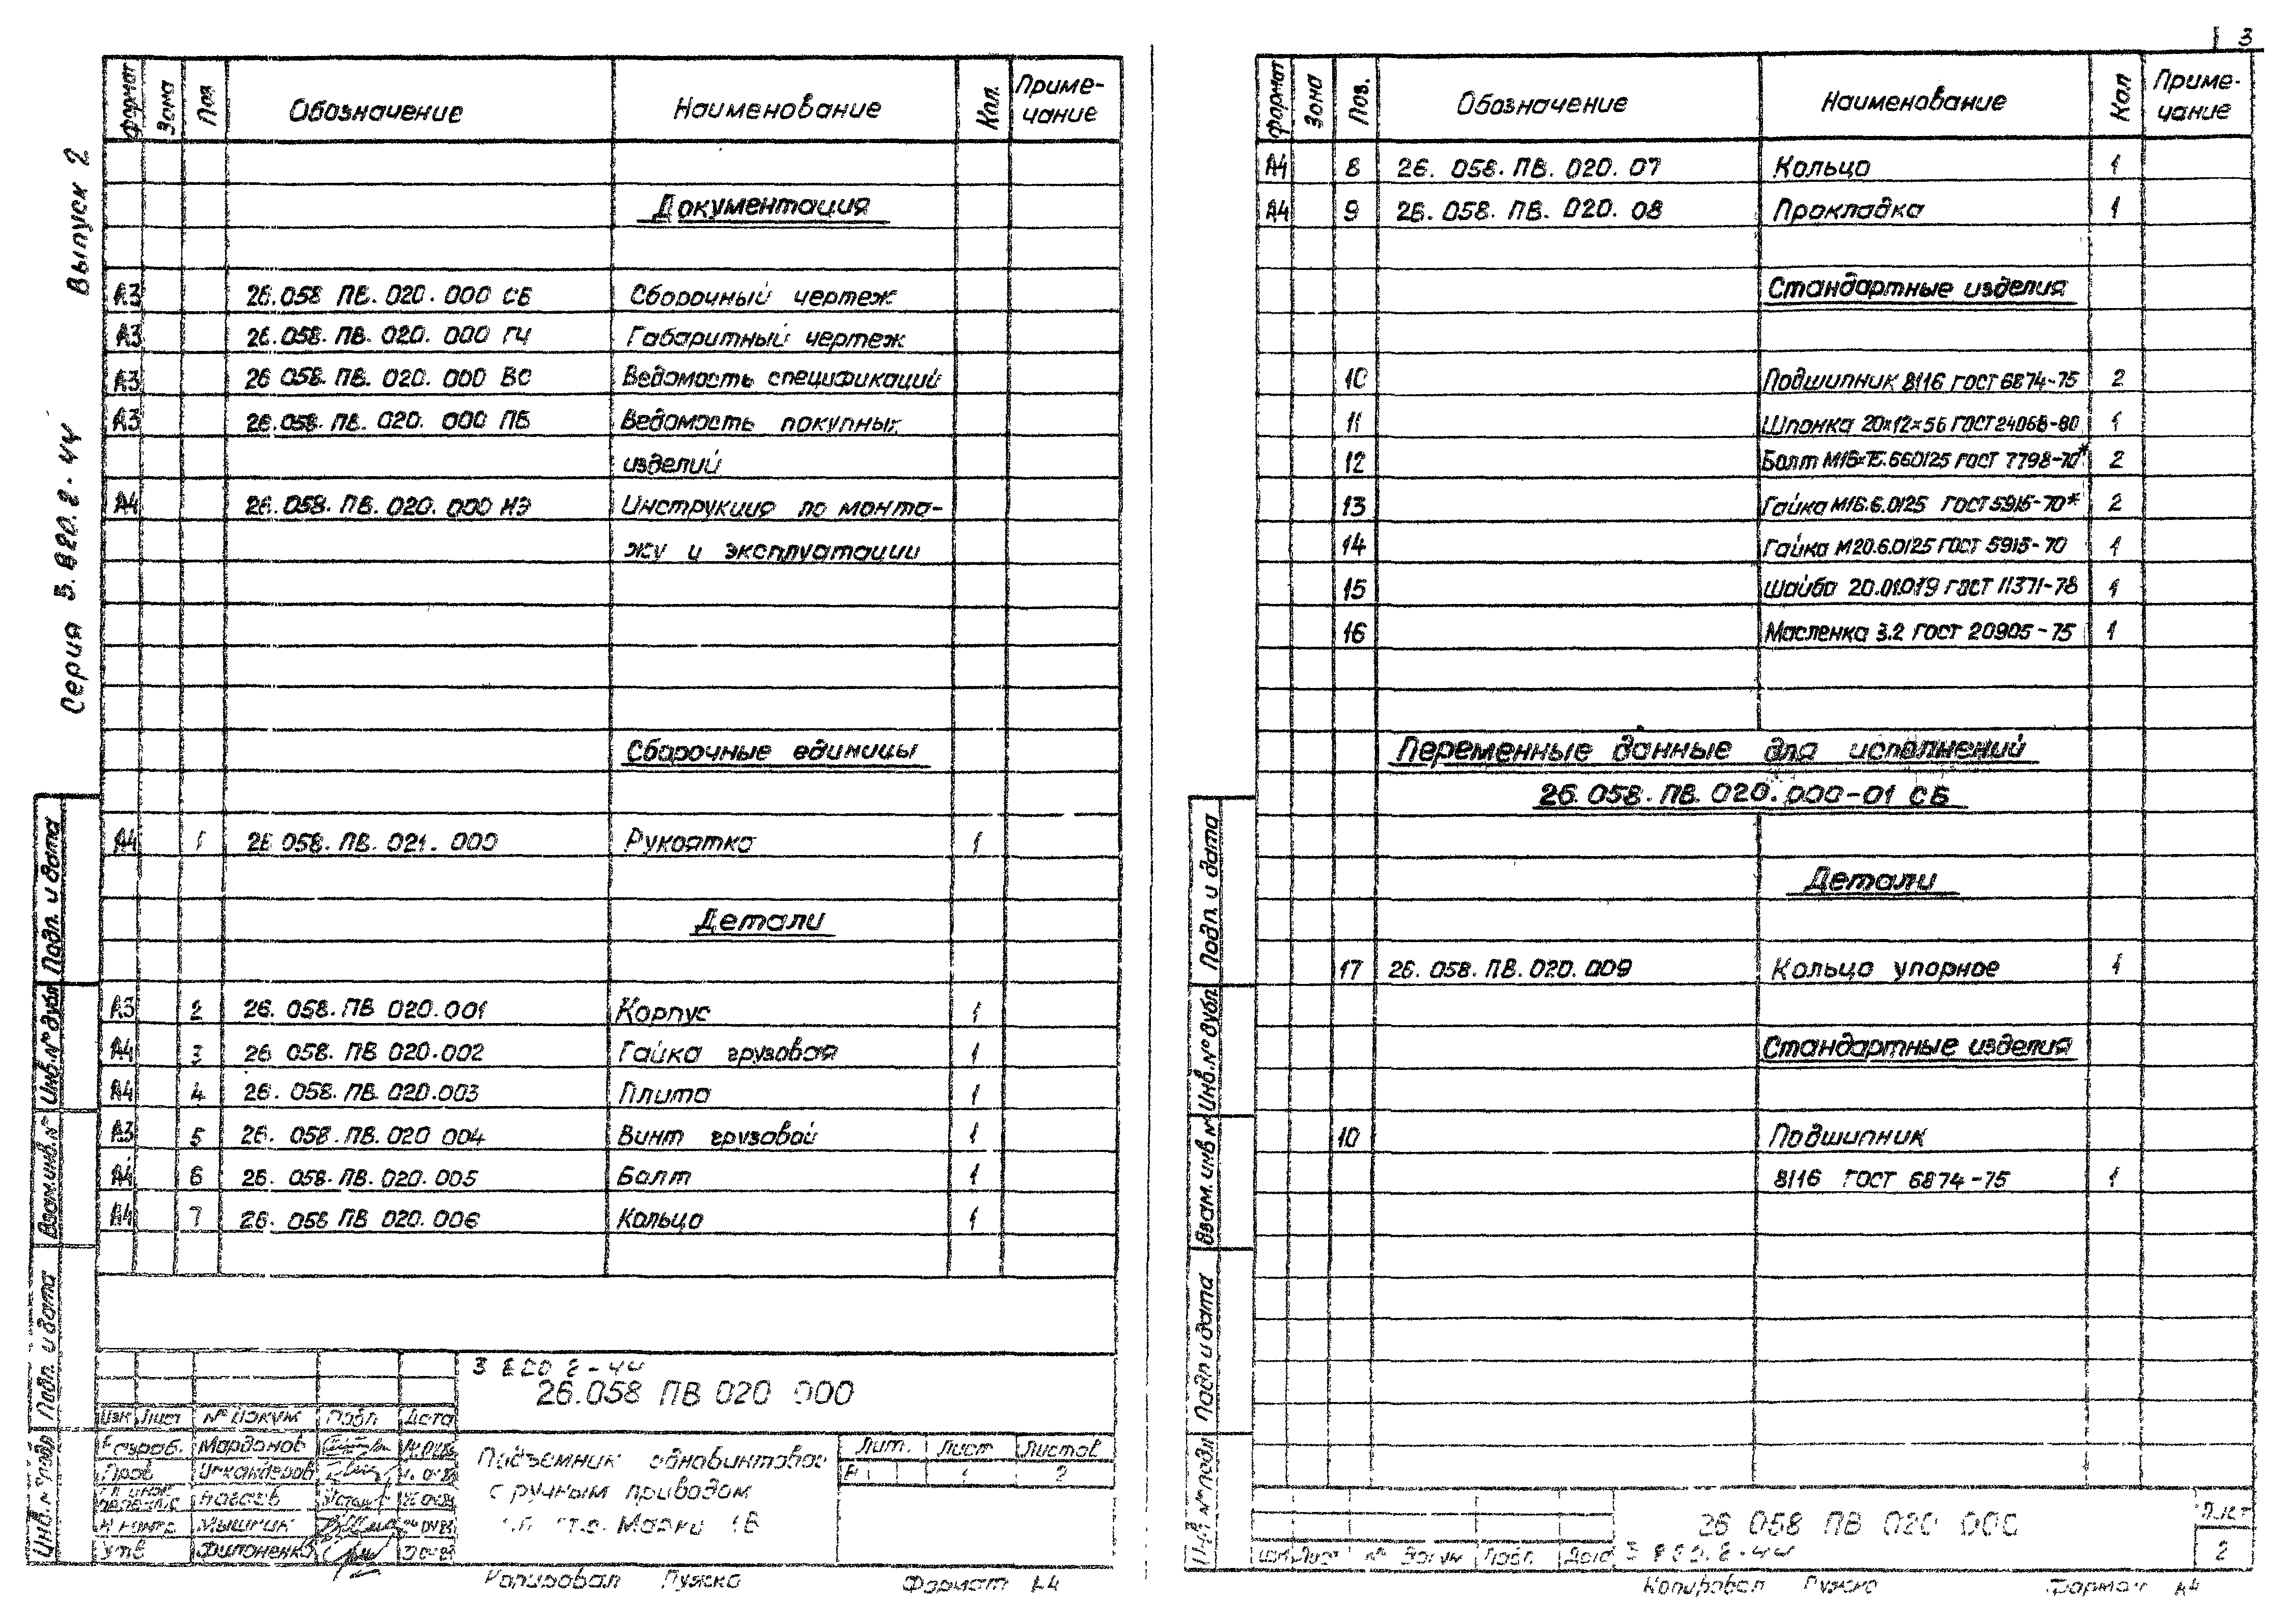 Серия 3.820.2-44 Выпуск 2
Формат Зона Поз Обозначение Наименование Кол. Приме-
чание
Документация
А3 26.058 ПВ.020.000 СБ Сборочный чертеж
А3 26.058.ПВ.020.000 ГЧ Габаритный чертеж
А3 26 058.ПВ.020.000 ВС Ведомость спецификаций
А3 26.058.ПВ.020.000 ПВ Ведомость покупных
изделий
А4 26.058.ПВ.020.000 ИЭ Инструкция по монта-
жу и эксплуатации
Сборочные единицы
А4 1 26 058.ПВ.021.000 Рукоятка 1
Детали
А3 2 26.058.ПВ 020.001 Корпус 1
А4 3 26 058.ПВ 020.002 Гайка грузовая 1
А4 4 26.058.ПВ.020.003 Плита 1
А3 5 26.058.ПВ.020 004 Винт грузовой 1
А4 6 26.058.ПВ.020.005 Болт 1
А4 7 26.058 ПВ 020.006 Кольцо 1
Подп. и дата
Инв.№ дубл
Взам.инв.№
Подп. и дата
Инв.№ подл
3 820 2-44
26.058 ПВ 020 000
Изм Лист № докум Подп Дата
Разраб. Марданов
Пров Искандеров
Н контр Мышкин
Утв Филоненко
Подъемник одновинтовой
с ручным приводом
Марки 1В
Лит. Лист Листов
1 2
Копировал Пужко Формат А4
3
Формат Зона Поз. Обозначение Наименование Кол Приме-
чание
А4 8 26.058.ПВ.020.07 Кольцо 1
А4 9 26.058.ПВ.020.08 Прокладка 1
Стандартные изделия
10 Подшипник 8116 ГОСТ 6874-75 2
11 Шпонка 20×12×56 ГОСТ 24068-80 1
12 Болт М16×75.660125 ГОСТ 7798-70* 2
13 Гайка М16.6.0125 ГОСТ 5915-70* 2
14 Гайка М20.6.0125 ГОСТ 5915-70 1
15 Шайба 20.01.019 ГОСТ 11371-78 1
16 Масленка 3.2 ГОСТ 20905-75 1
Переменные данные для исполнений
26.058.ПВ.020.000-01 СБ
Детали
17 26.058.ПВ.020.009 Кольцо упорное 1
Стандартные изделия
10 Подшипник
8116 ГОСТ 6874-75 1
Подп. и дата
Инв.№ дубл
Взам.инв №
Подп и дата
Инв №подл
26 058 ПВ 020 000
Лист
2
Изм Лист № докум Подп. Дата 3 820.2-44
Копировал Пужко Формат А4